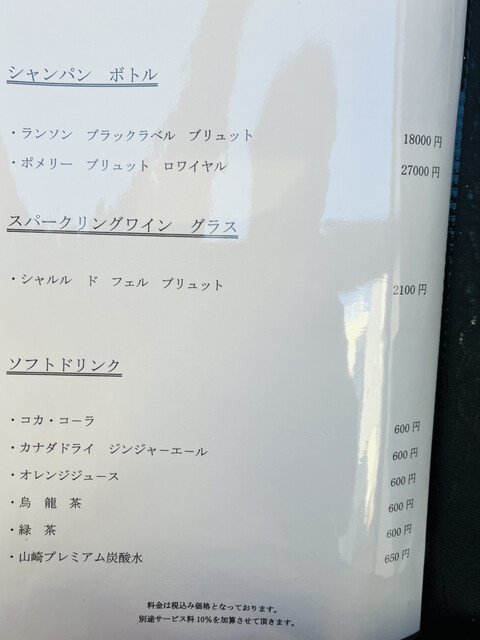 シャンパン ボトル
・ランソン ブラックラベル ブリュット 18000円
・ポメリー ブリュット ロワイヤル 27000円
スパークリングワイン グラス
・シャルル ド フェル ブリュット 2100円
ソフトドリンク
・コカ・コーラ 600円
・カナダドライ ジンジャーエール 600円
・オレンジジュース 600円
・烏 龍 茶 600円
・緑 茶 600円
・山崎プレミアム炭酸水 650円
料金は税込み価格となっております。
別途サービス料10%を加算させて頂きます。